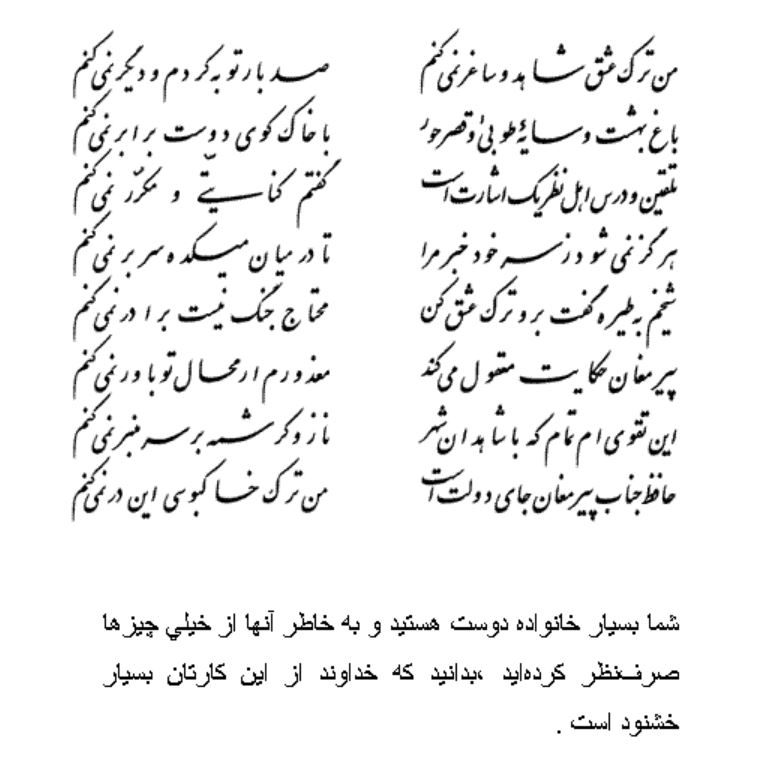 من ترک عشق شاهد و ساغر نمی کنم صد بار توبه کردم و دیگر نمی کنم
باغ بهشت و سایهٔ طوبیٰ و قصر حور با خاک کوی دوست برابر نمی کنم
تلقین و درس اهل نظر یک اشارت است گفتم کنایتّی و مکرّر نمی کنم
هرگز نمی شود ز سر خود خبر مرا تا در میان میکده سر بر نمی کنم
شیخم به طیره گفت برو ترک عشق کن محتاج جنگ نیست برادر نمی کنم
پیر مغان حکایت معقول می کند معذورم ار محال تو باور نمی کنم
این تقوی ام تمام که با شاهدان شهر ناز و کرشمه بر سر منبر نمی کنم
حافظ جناب پیر مغان جای دولت است من ترک خاکبوسی این در نمی کنم
شما بسیار خانواده دوست هستید و به خاطر آنها از خیلي چیزها
صرف‌نظر کرده‌اید ،بدانید که خداوند از این کارتان بسیار
خشنود است .